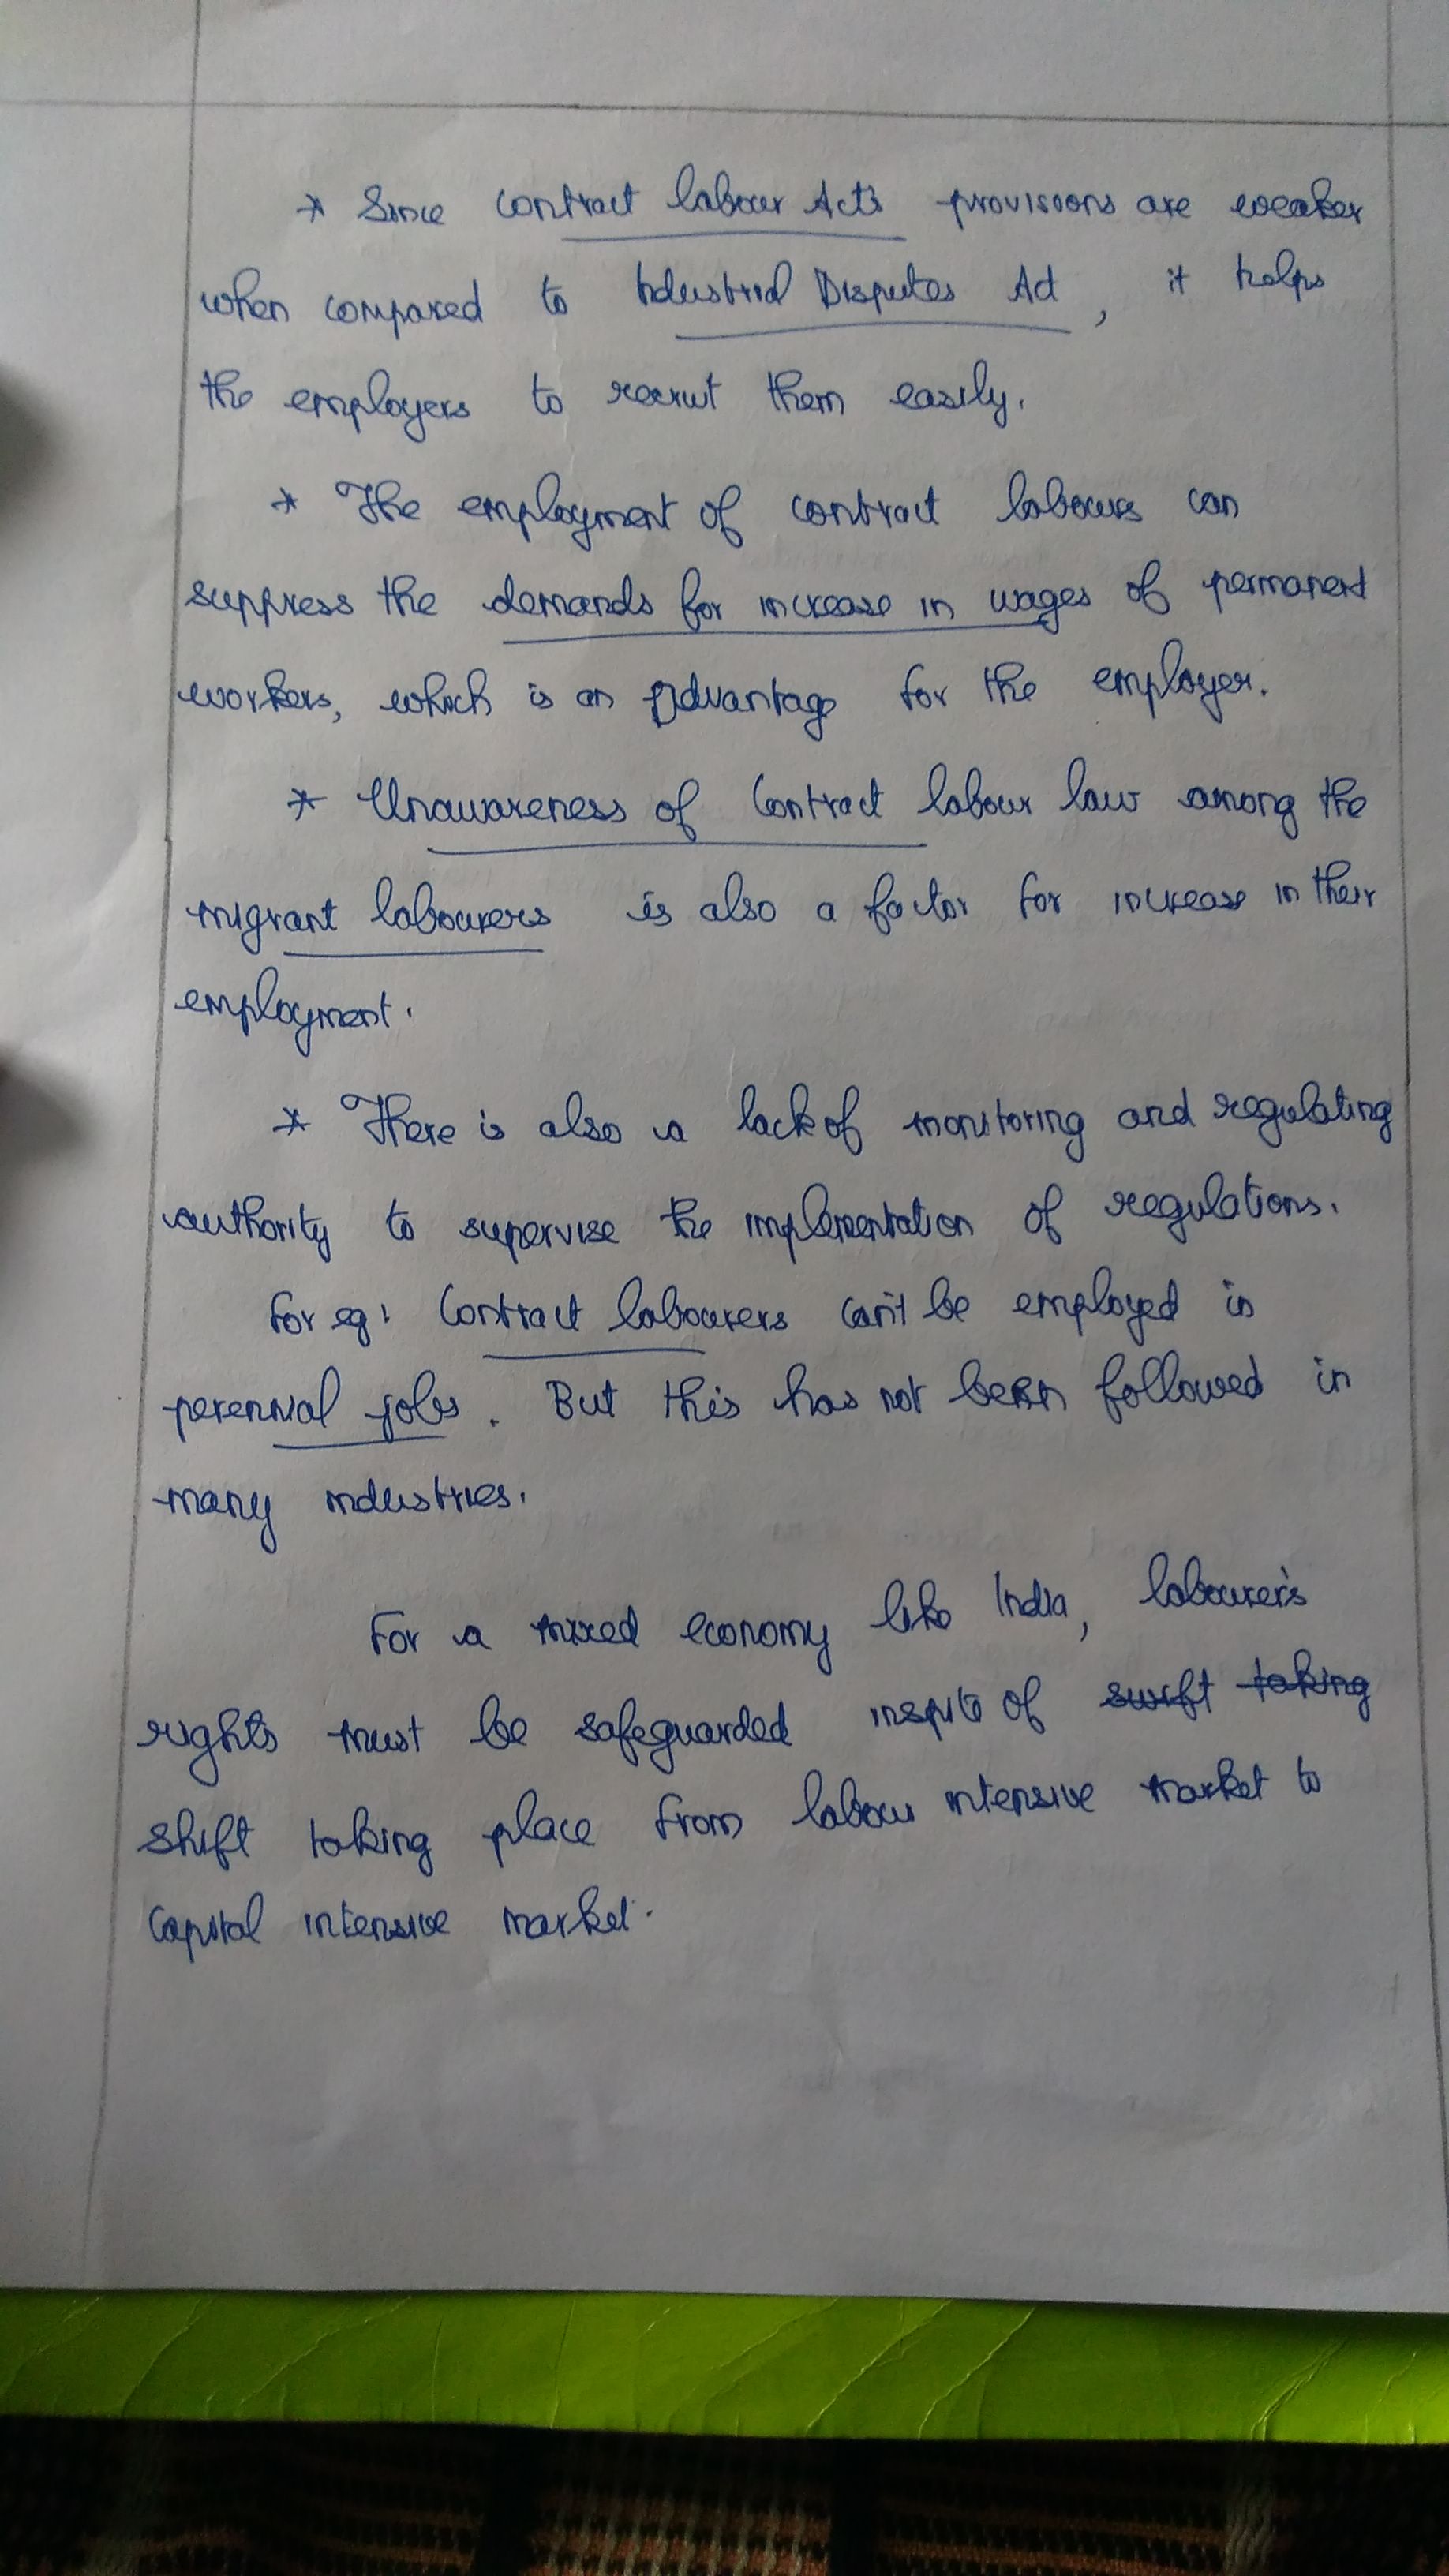 * Since contract labour Act's provisions are weaker
when compared to Industrial Disputes Act, it helps
the employers to recruit them easily.
* The employment of contract labours can
suppress the demands for increase in wages of permanent
workers, which is an Advantage for the employer.
* Unawareness of Contract labour law among the
migrant labourers is also a factor for increase in their
employment.
* There is also a lack of monitoring and regulating
authority to supervise the implementation of regulations.
For eg: Contract labourers can't be employed in
perennial jobs. But this has not been followed in
many industries.
For a mixed economy like India, labourer's
rights must be safeguarded inspite of swift taking
shift taking place from labour intensive market to
Capital intensive market.